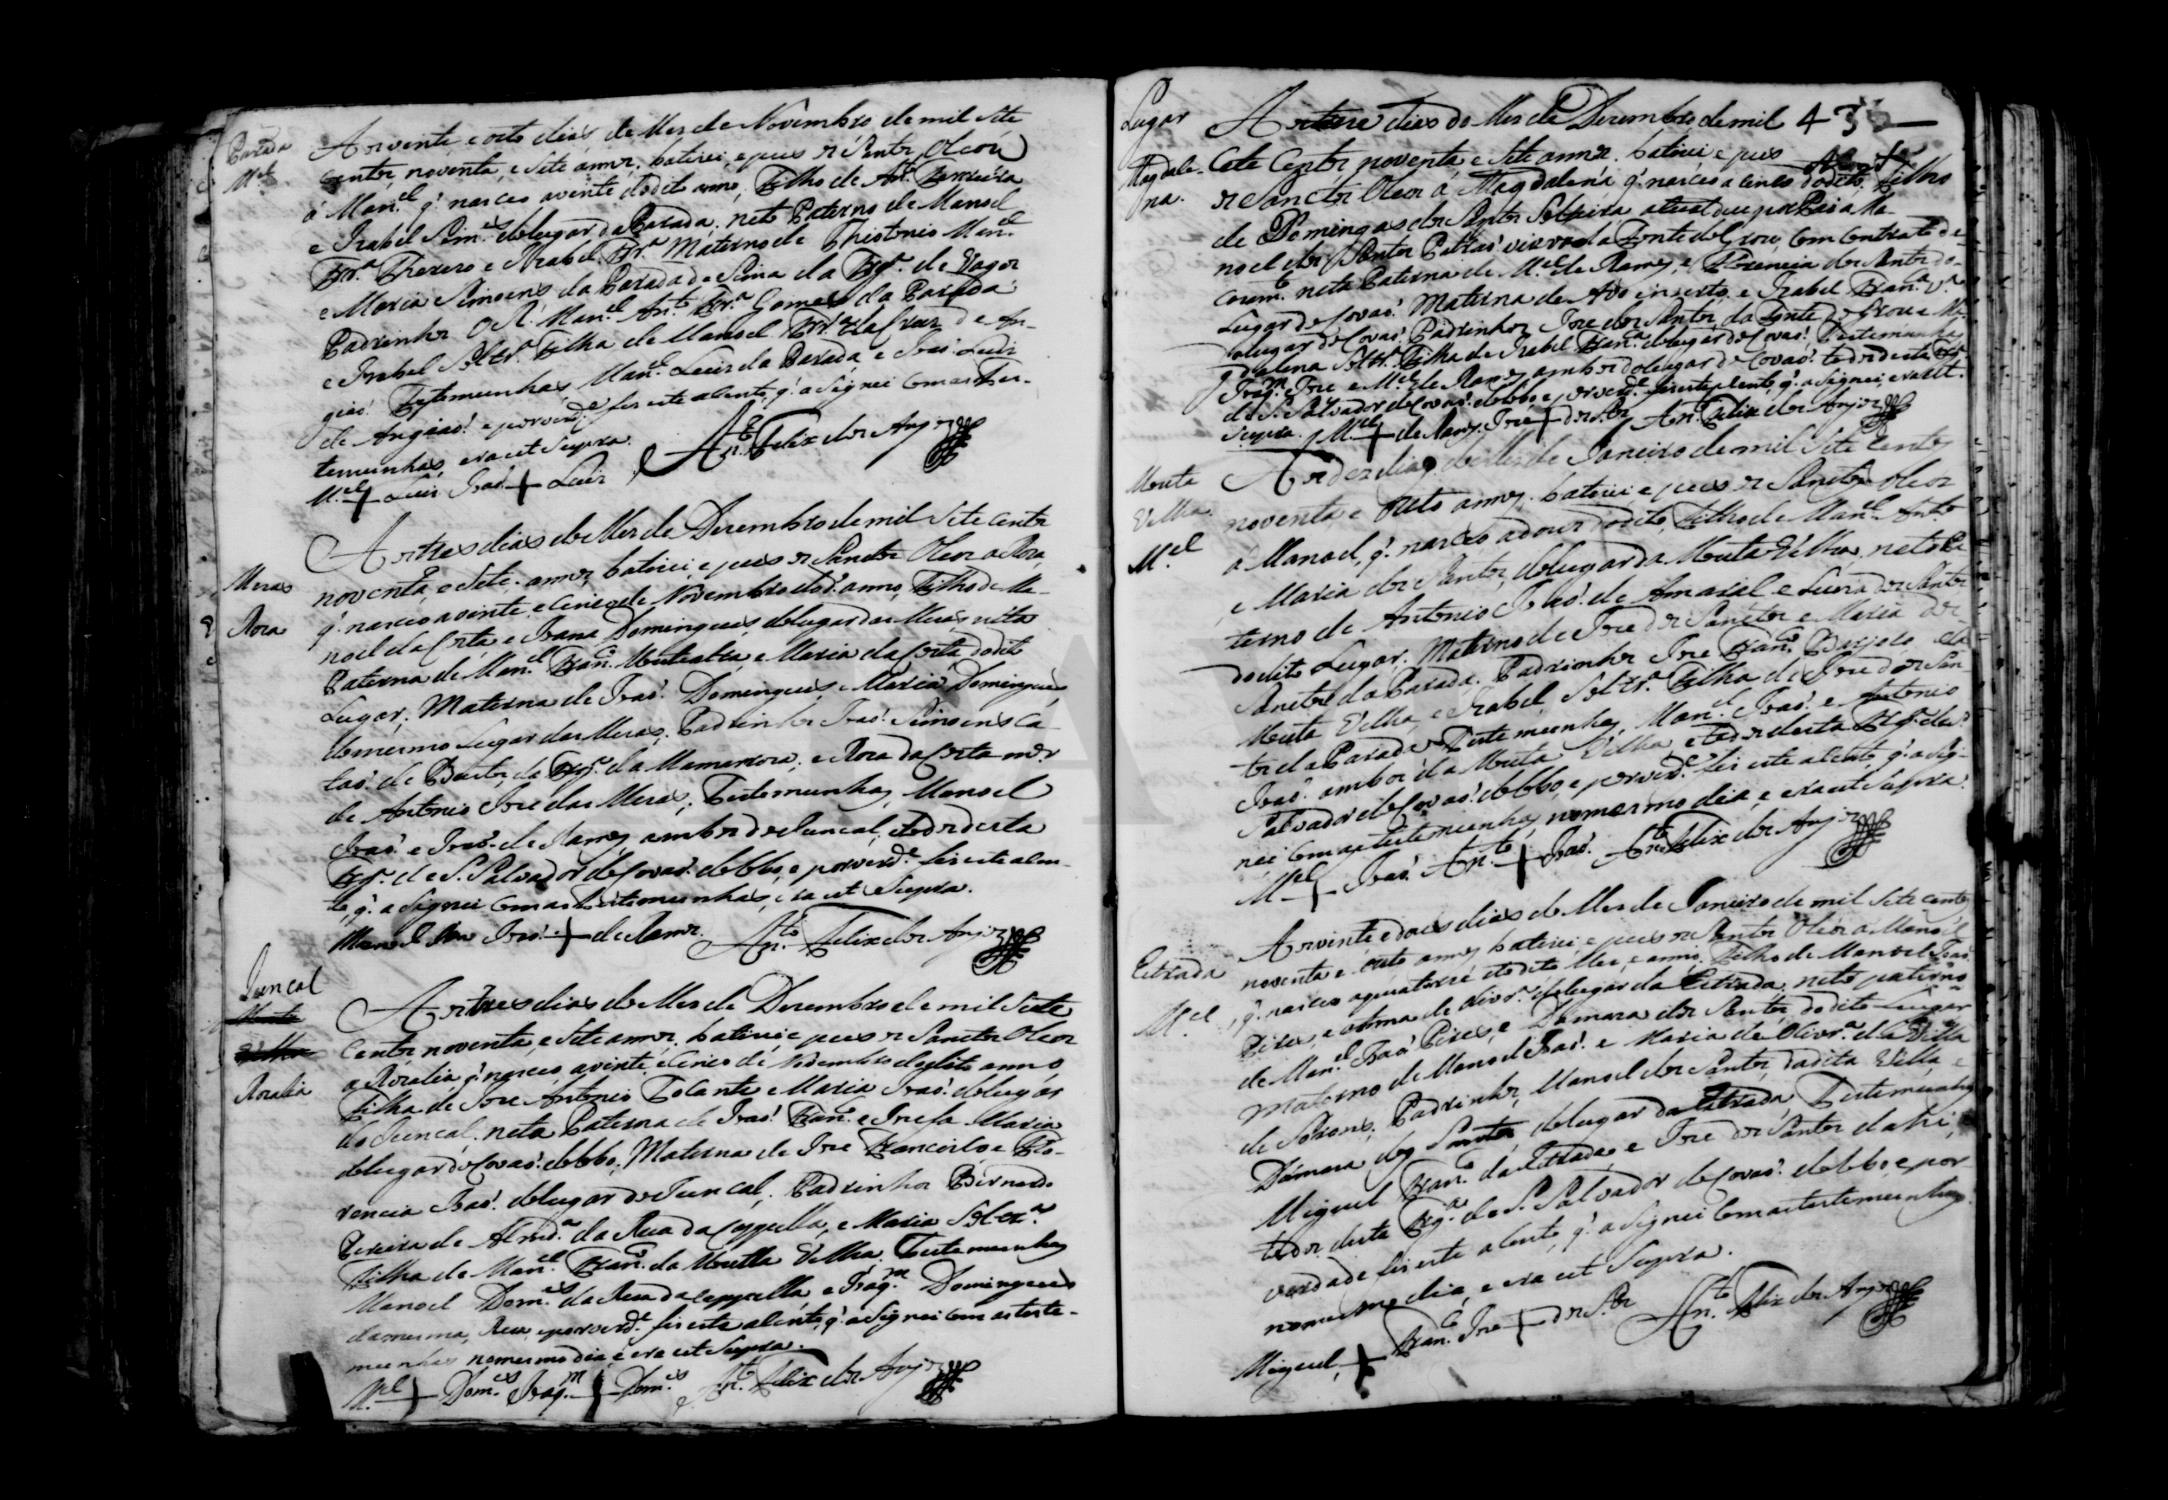 Parada
M.el
Aos vente e oito dias do Mes de Novembro de mil Sete
centos noventa, e Sete annos, batizei, e pus os Santos Oleos
á Man.el q. nasceo a vinte do dito anno, Filho de An.to Ferreira
e Izabel Sim.es do lugar da Parada, neto Paterno de Manoel
e Izabel Fr.a Materno de Man.el
e Maria Simoens da Parada de Sima da Frg.a de Vagos
Padrinhos O R. Man.el An.to Fr.a Gomes da Parada
e Izabel Soltr.a Filha de Manoel Frr.a da Cruz de An-
giaõ. Testemunhas, Man.el Luis da Parada, e Joaõ Luis
de Angiaõ. e por verd.e fis este acento, q. aSignei com as tes-
temunhas, era ut Supra.
M.el + Luis Joaõ + Luis An.to Felix dos Anjos
Mesas
Roza
Aos tres dias do Mes de Dezembro de mil Sete centos
noventa, e Sete annos, batizei e pus os Sanctos Oleos a Roza,
q. nasceo a vinte e Cinco de Novembro do d.o anno, Filha de Ma-
noel da Costa e Joana Domingues, do lugar das Mesas neta
Paterna de Man.el Fran.co e Maria da Costa do dito
Lugar, Materna de Joaõ Domingues, e Maria Domingues
do mesmo Lugar das Mesas, Padrinhos Joaõ Simoens Ca-
taõ de da Frg.a da Mamarroza, e Roza da Costa m.er
de Antonio Joze das Mesas, Testemunhas, Manoel
Joaõ e Joaõ de Ramos, ambos do Juncal, e todos desta
Frg.a de S. Salvador de Covaõ do Lobo, e por verd.e fis este acen-
to, q. aSignei com as testemunhas, era ut Supra.
Manoel Joaõ Joaõ + de Ramos. An.to Felix dos Anjos
Juncal
Rozalia
Aos tres dias do Mes de Dezembro de mil Sete
Centos noventa, e Sete annos, batizei, e pus os Sanctos Oleos
a Rozalia q. nasceo, a vinte, e Cinco de Novembro do dito anno,
Filha de Joze Antonio Tocante e Maria Joaõ do lugar
do Juncal. neta Paterna de Joaõ Fran.co e Maria
do lugar de Covaõ do Lobo, Materna de Joze Francisco e Flo-
rencia Joaõ do lugar do Juncal, Padrinhos Bernardo
Pereira de Almd.a da Rua da Cappella, e Maria Solter.a
Filha de Man.el Fran.co da Moutta Velha, Testemunhas
Manoel Dom.es da Rua da Cappella, e Joaq.m Domingues
da mesma Rua, e por verd.e fis este acento, q. aSignei com as teste-
munhas no mesmo dia, e era ut Supra.
M.el + Dom.es Joaq.m + Dom.es An.to Felix dos Anjos
Lugar
Magdale-
na.
Aos treze dias do Mes de Dezembro de mil 43
Cete Centos noventa e Sete annos. batizei e pus
os Sanctos Oleos á Magdalena q. nasceo a cinco do dito, Filha
de Domingas dos Santos Solteira a qual deu por Pai a Ma-
noel dos Santos viuvo da Fonte do Grou, com Contrato de
cazam.to neta Paterna de M.el de Ramos, e Florencia dos Santos do
Lugar de Covaõ. Materna de Avo incerto e Izabel Fran.ca V.a
do lugar de Covaõ. Padrinhos, Joze dos Santos, da Fonte do Grou e Ma-
gdalena Soltr.a Filha de Izabel Fran.ca do lugar de Covaõ. Testemunhas
Joze e M.el de Ramos ambos do lugar de Covaõ. todos desta Frg.a
de S. Salvador de Covaõ do Lobo e por verd.e fis este acento, q. aSignei, era ut.
Supra. M.el + de Ramos. Joze + dos S.tos An.to Felix dos Anjos
Mouta
Velha
M.el
Aos dez dias do Mes de Janeiro de mil Sete Centos
noventa e outo annos, batizei e pus os Sanctos Oleos
á Manoel, q. nasceo a dous do dito, Filho de Man.el Ant.o
e Maria dos Santos, do lugar da Mouta Velha, neto Pa-
terno de Antonio Joaõ de Amaral e Luiza dos Santos
do dito Lugar, Materno de Joze dos Sanctos e Maria dos
Sanctos da Parada. Padrinhos Joze Fran.co da
Mouta Velha, e Izabel Soltr.a Filha de Joze dos San-
tos da Parada, Testemunhas, Man.el Joaõ e Antonio
Joaõ ambos da Mouta Velha, e todos desta Frg.a de S.
Salvador de Covaõ do Lobo, e por verd.e fis este acento, q. aSig-
nei com as testemunhas, no mesmo dia, e era ut Supra.
M.el + Joaõ An.to + Joaõ. An.to Felix dos Anjos
Estrada
M.el
Aos vinte e dous dias do Mes de Janeiro de mil Sete centos
noventa e outo annos, batizei e pus os Santos Oleos á Manoel
q. nasceo a quatorze do dito Mes, e anno, Filho de Manoel Joaõ
Pires, e de Olivr.a do lugar da Estrada, neto paterno
de Man.el Joaõ Pires, e Damara dos Santos, do dito Lugar
Materno de Manoel Joaõ e Maria de Olivr.a da Villa
de Padrinhos, Manoel dos Santos, da dita Villa, e
Damara dos Santos, do lugar da Estrada, Testemunhas
Miguel Fran.co da Estrada e Joze dos Santos dahi,
todos desta Frg.a de S. Salvador de Covaõ do Lobo e por
verdade fis este acento, q. aSignei com as testemunhas
no mesmo dia, e era ut Supra.
Miguel + Fran.co Joze + dos S.tos An.to Felix dos Anjos